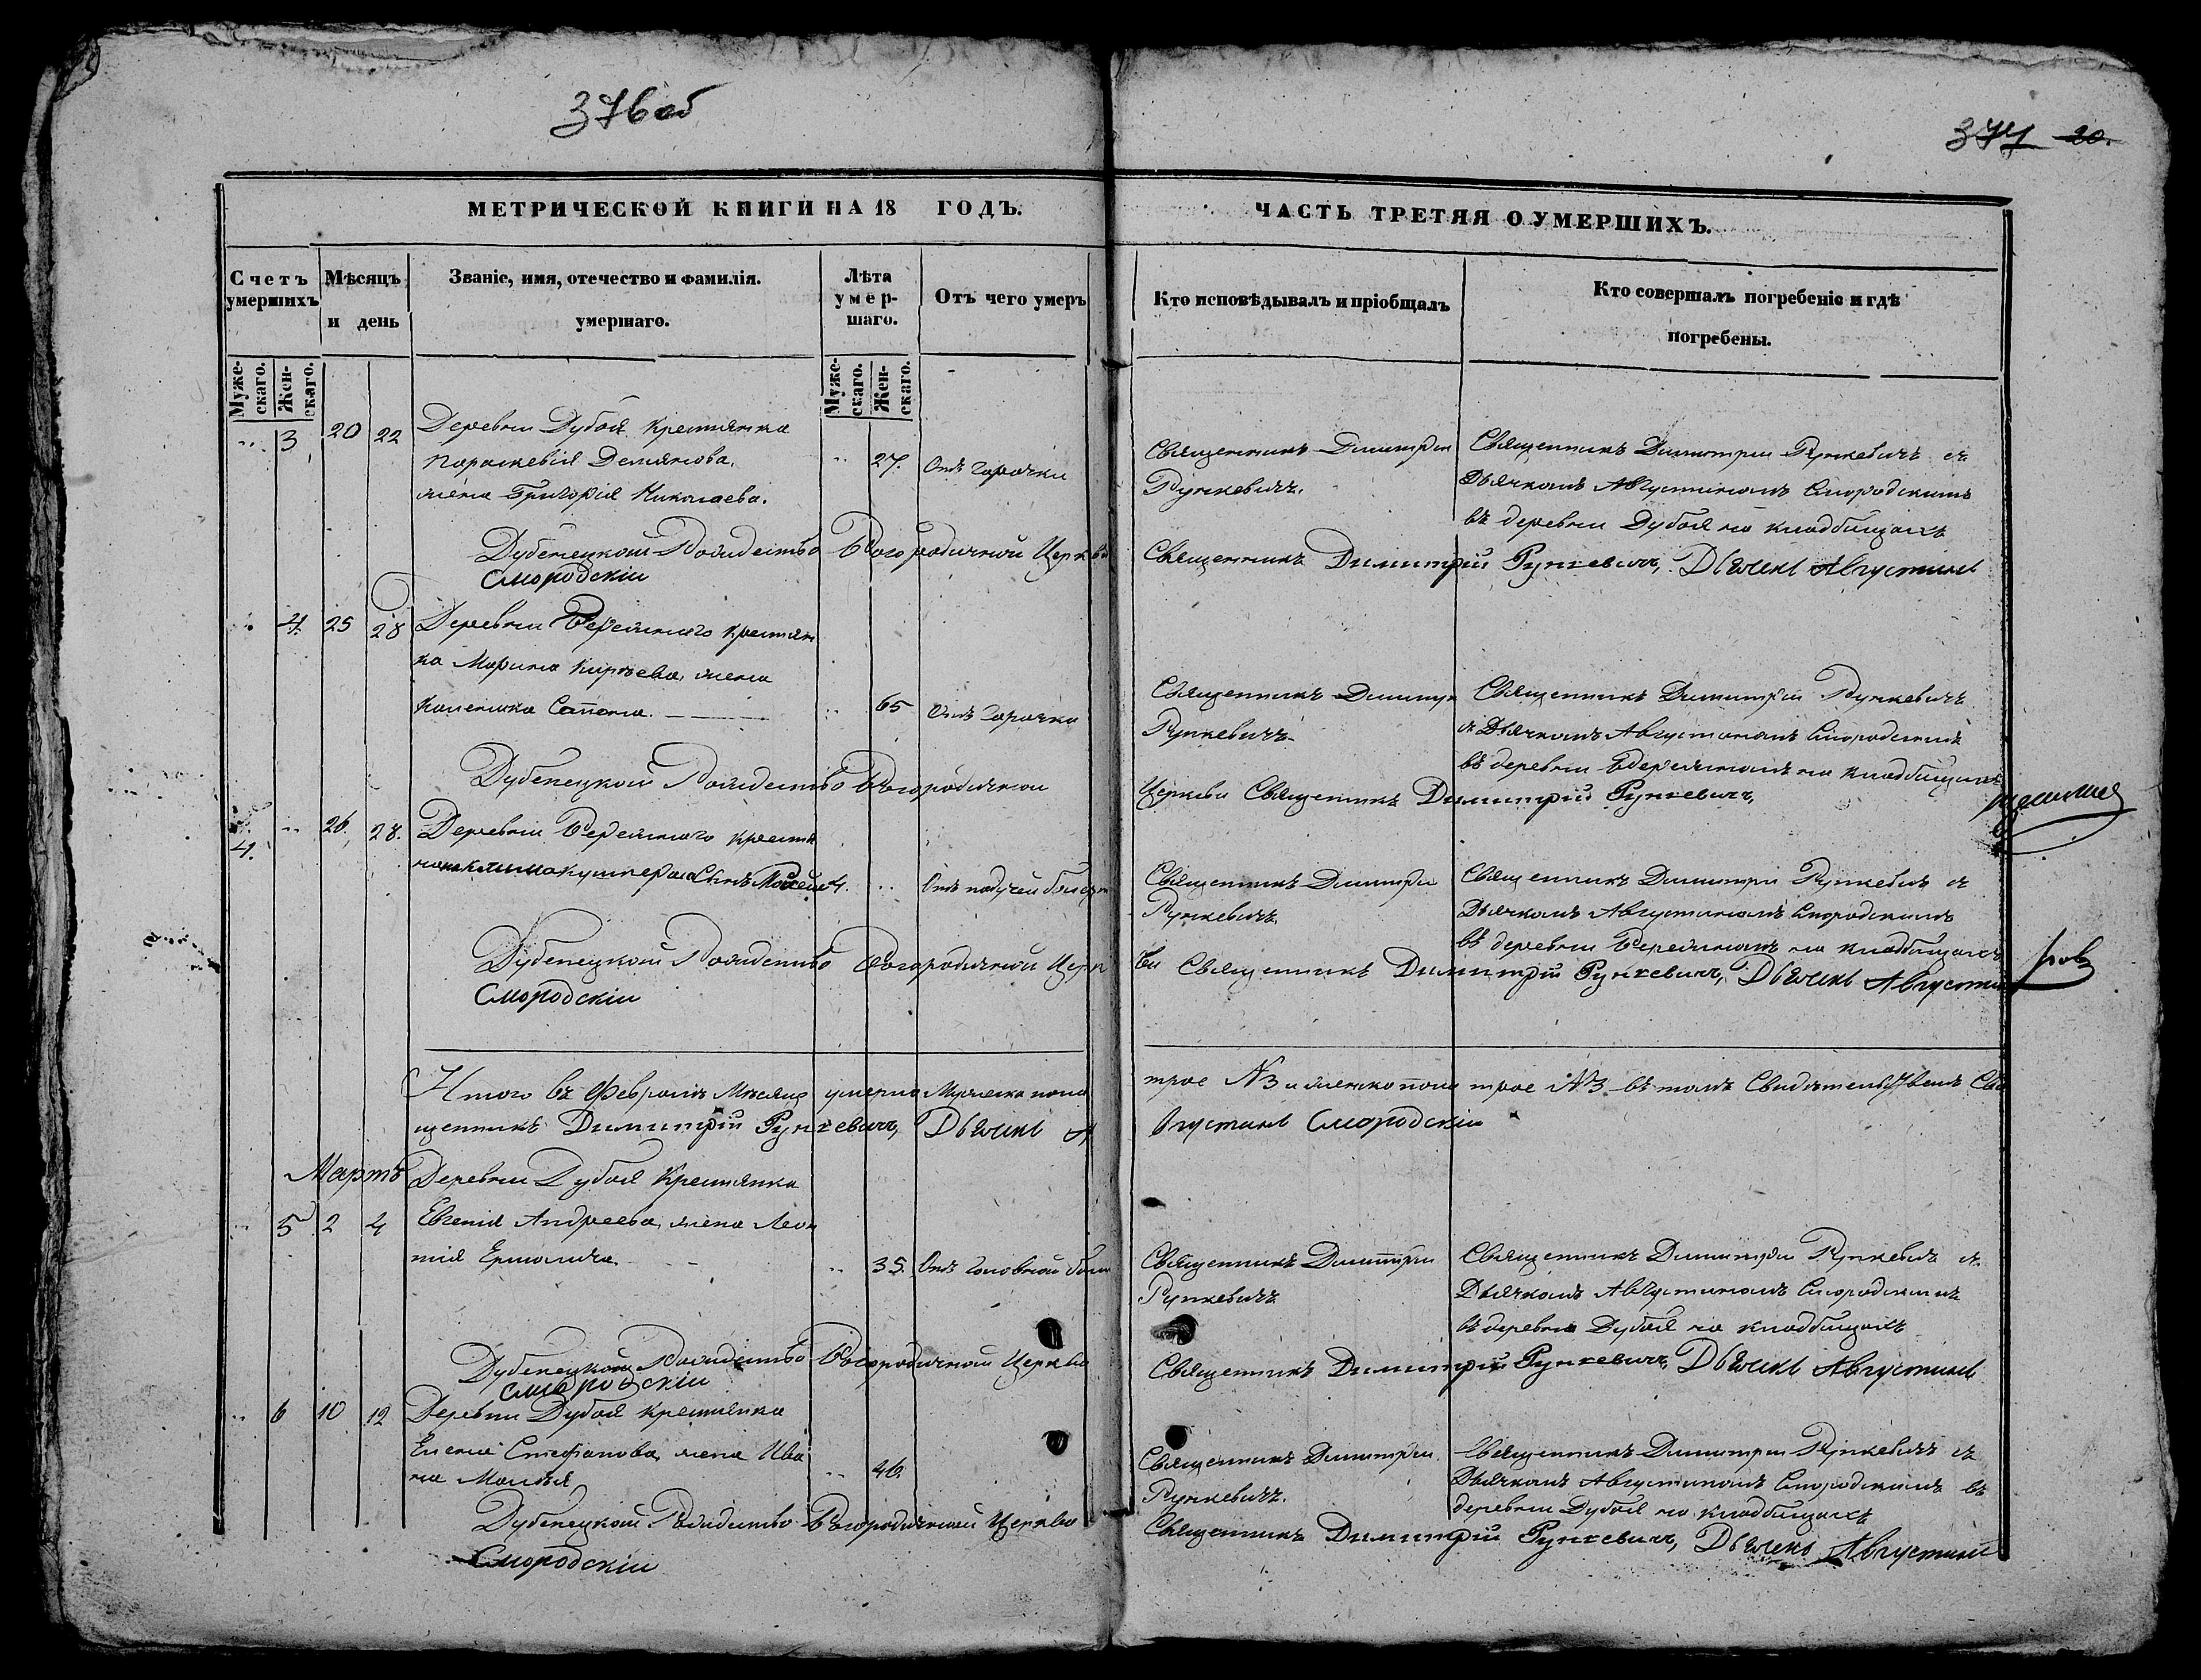 376об
377 20.
МЕТРИЧЕСКОЙ КНИГИ НА 18 ГОДЪ.
ЧАСТЬ ТРЕТЯЯ О УМЕРШИХЪ.
Счетъ умершихъ
Мѣсяцъ и день
Званіе, имя, отечество и фамилія. умершаго.
Лѣта умер-шаго.
Отъ чего умеръ
Кто исповѣдывалъ и пріобщалъ
Кто совершалъ погребеніе и гдѣ
погребены.
Муже-скаго.
Жен-скаго.
Муже-скаго.
Жен-скаго.
.. 3 20 22 Деревни Дубоя крестянка
Параскевія Демянова, .. 27. Отъ горячки
жена Григорія Николаева.
Священникъ Димитри
Рункевичъ.
Священникъ Димитри Рункевичъ съ
Дьячкомъ Августиномъ Смородскимъ
въ деревни Дубоя на кладбищахъ
Дубенецкой Рождество Богородичной Церкви Священникъ Димитрій Рункевичъ, Дьячекъ Августинъ
Смородскій
.. 4. 25 28 Деревни Бережного крестян
ка Марина Киръева, жена
.. 65 Отъ горячки
Священникъ Димитр
Рункевичъ
Священникъ Димитри Рункевичъ
съ Дьячкомъ Августиномъ Смородскимъ
въ деревни Бережномъ на кладбищахъ
Дубенецкой Рождество Богородичной Церкви Священникъ Димитрій Рункевичъ,
4. .. 26 28. Деревни Бережного крестя
4. .. Отъ
Священникъ Димитри
Рункевичъ
Священникъ Димитри Рункевичъ съ
Дьячкомъ Августиномъ Смородскимъ
въ деревни Бережномъ на кладбищахъ
Дубенецкой Рождество Богородичной Церкви Священникъ Димитрій Рункевичъ, Дьячекъ Августинъ
Смородскій
Итого въ Февралѣ Мѣсяцѣ умерло Мужеска пола трое №3 и женско пола трое №3 въ томъ Свидѣтельствуемъ Свя
щенникъ Димитрій Рункевичъ, Дьячекъ Августинъ Смородскій
Мартъ
Деревни Дубоя Крестянка
.. 5 2 4 Евгенія Андреева, жена Леон
тія Ермолича. .. 35. Отъ головной боли
Священникъ Димитри
Рункевичъ
Священникъ Димитри Рункевичъ съ
Дьячкомъ Августиномъ Смородскимъ
въ деревни Дубоя на кладбищахъ
Дубенецкой Рождество Богородичной Церкви Священникъ Димитрій Рункевичъ, Дьячекъ Августинъ
Смородскій
.. 6 10 12 Деревни Дубоя крестянка
Елена Стефанова, жена Ива
на .. 46.
Священникъ Димитри
Рункевичъ.
Священникъ Димитри Рункевичъ съ
Дьячкомъ Августиномъ Смородскимъ въ
деревни Дубоя на кладбищахъ
Дубенецкой Рождество Богородичной Церкви Священникъ Димитрій Рункевичъ, Дьячекъ Августинъ
Смородскій